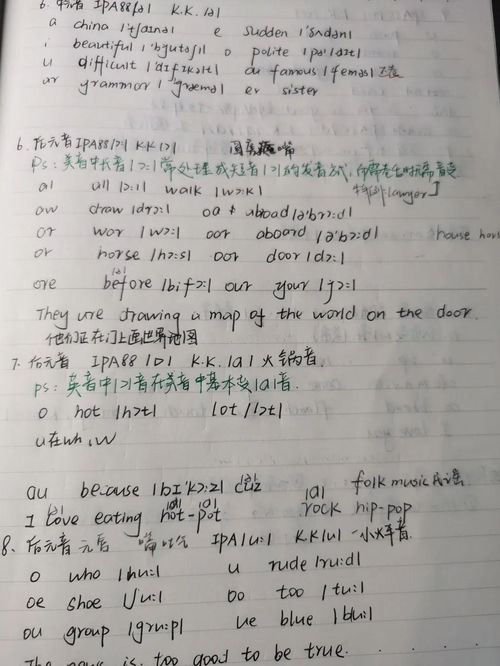 6. 中元音 IPA88|ə| K.K. |ə|
a china |'tʃaɪnə| e sudden |'sʌdən|
i beautiful |'bjutəfl| o polite |pə'laɪt|
u difficult |'dɪfɪkəlt| ou famous |'feməs|
ar grammar |'græmə| er sister
6. 后元音 IPA88|ɔ:| K.K.|ɔ|
ps: 美音中长音|ɔ:|常处理成短音|ɔ|的发音方式,
al all |ɔ:l| walk |wɔ:k| 特例 lawyer]
aw draw |drɔ:| oa abroad |ə'brɔ:d|
ar war |wɔ:| oar aboard |ə'bɔ:d| house hors
or horse |hɔ:s| oor door |dɔ:|
ore before |bifɔ:| our your |jɔ:|
They are drawing a map of the world on the door.
他们正在门上画世界地图
7. 后元音 IPA88 |ɒ| K.K. |ɑ| 火锅音
ps: 英音中|ɔ|音在美音中基本变|ɑ|音.
o hot |hɔt| lot |lɔt|
u在wh, w
au because |bɪ'kɔ:z| cuz |ɑ| folk music 民谣
I love eating hot-pot rock hip-pop
8. 后元音 IPA|u:| K.K|u| 小火车音
o who |hu:| u rude |ru:d|
oe shoe |ʃu:| oo too |tu:|
ou group |gru:p| ue blue |blu:|
The news is too good to be true.